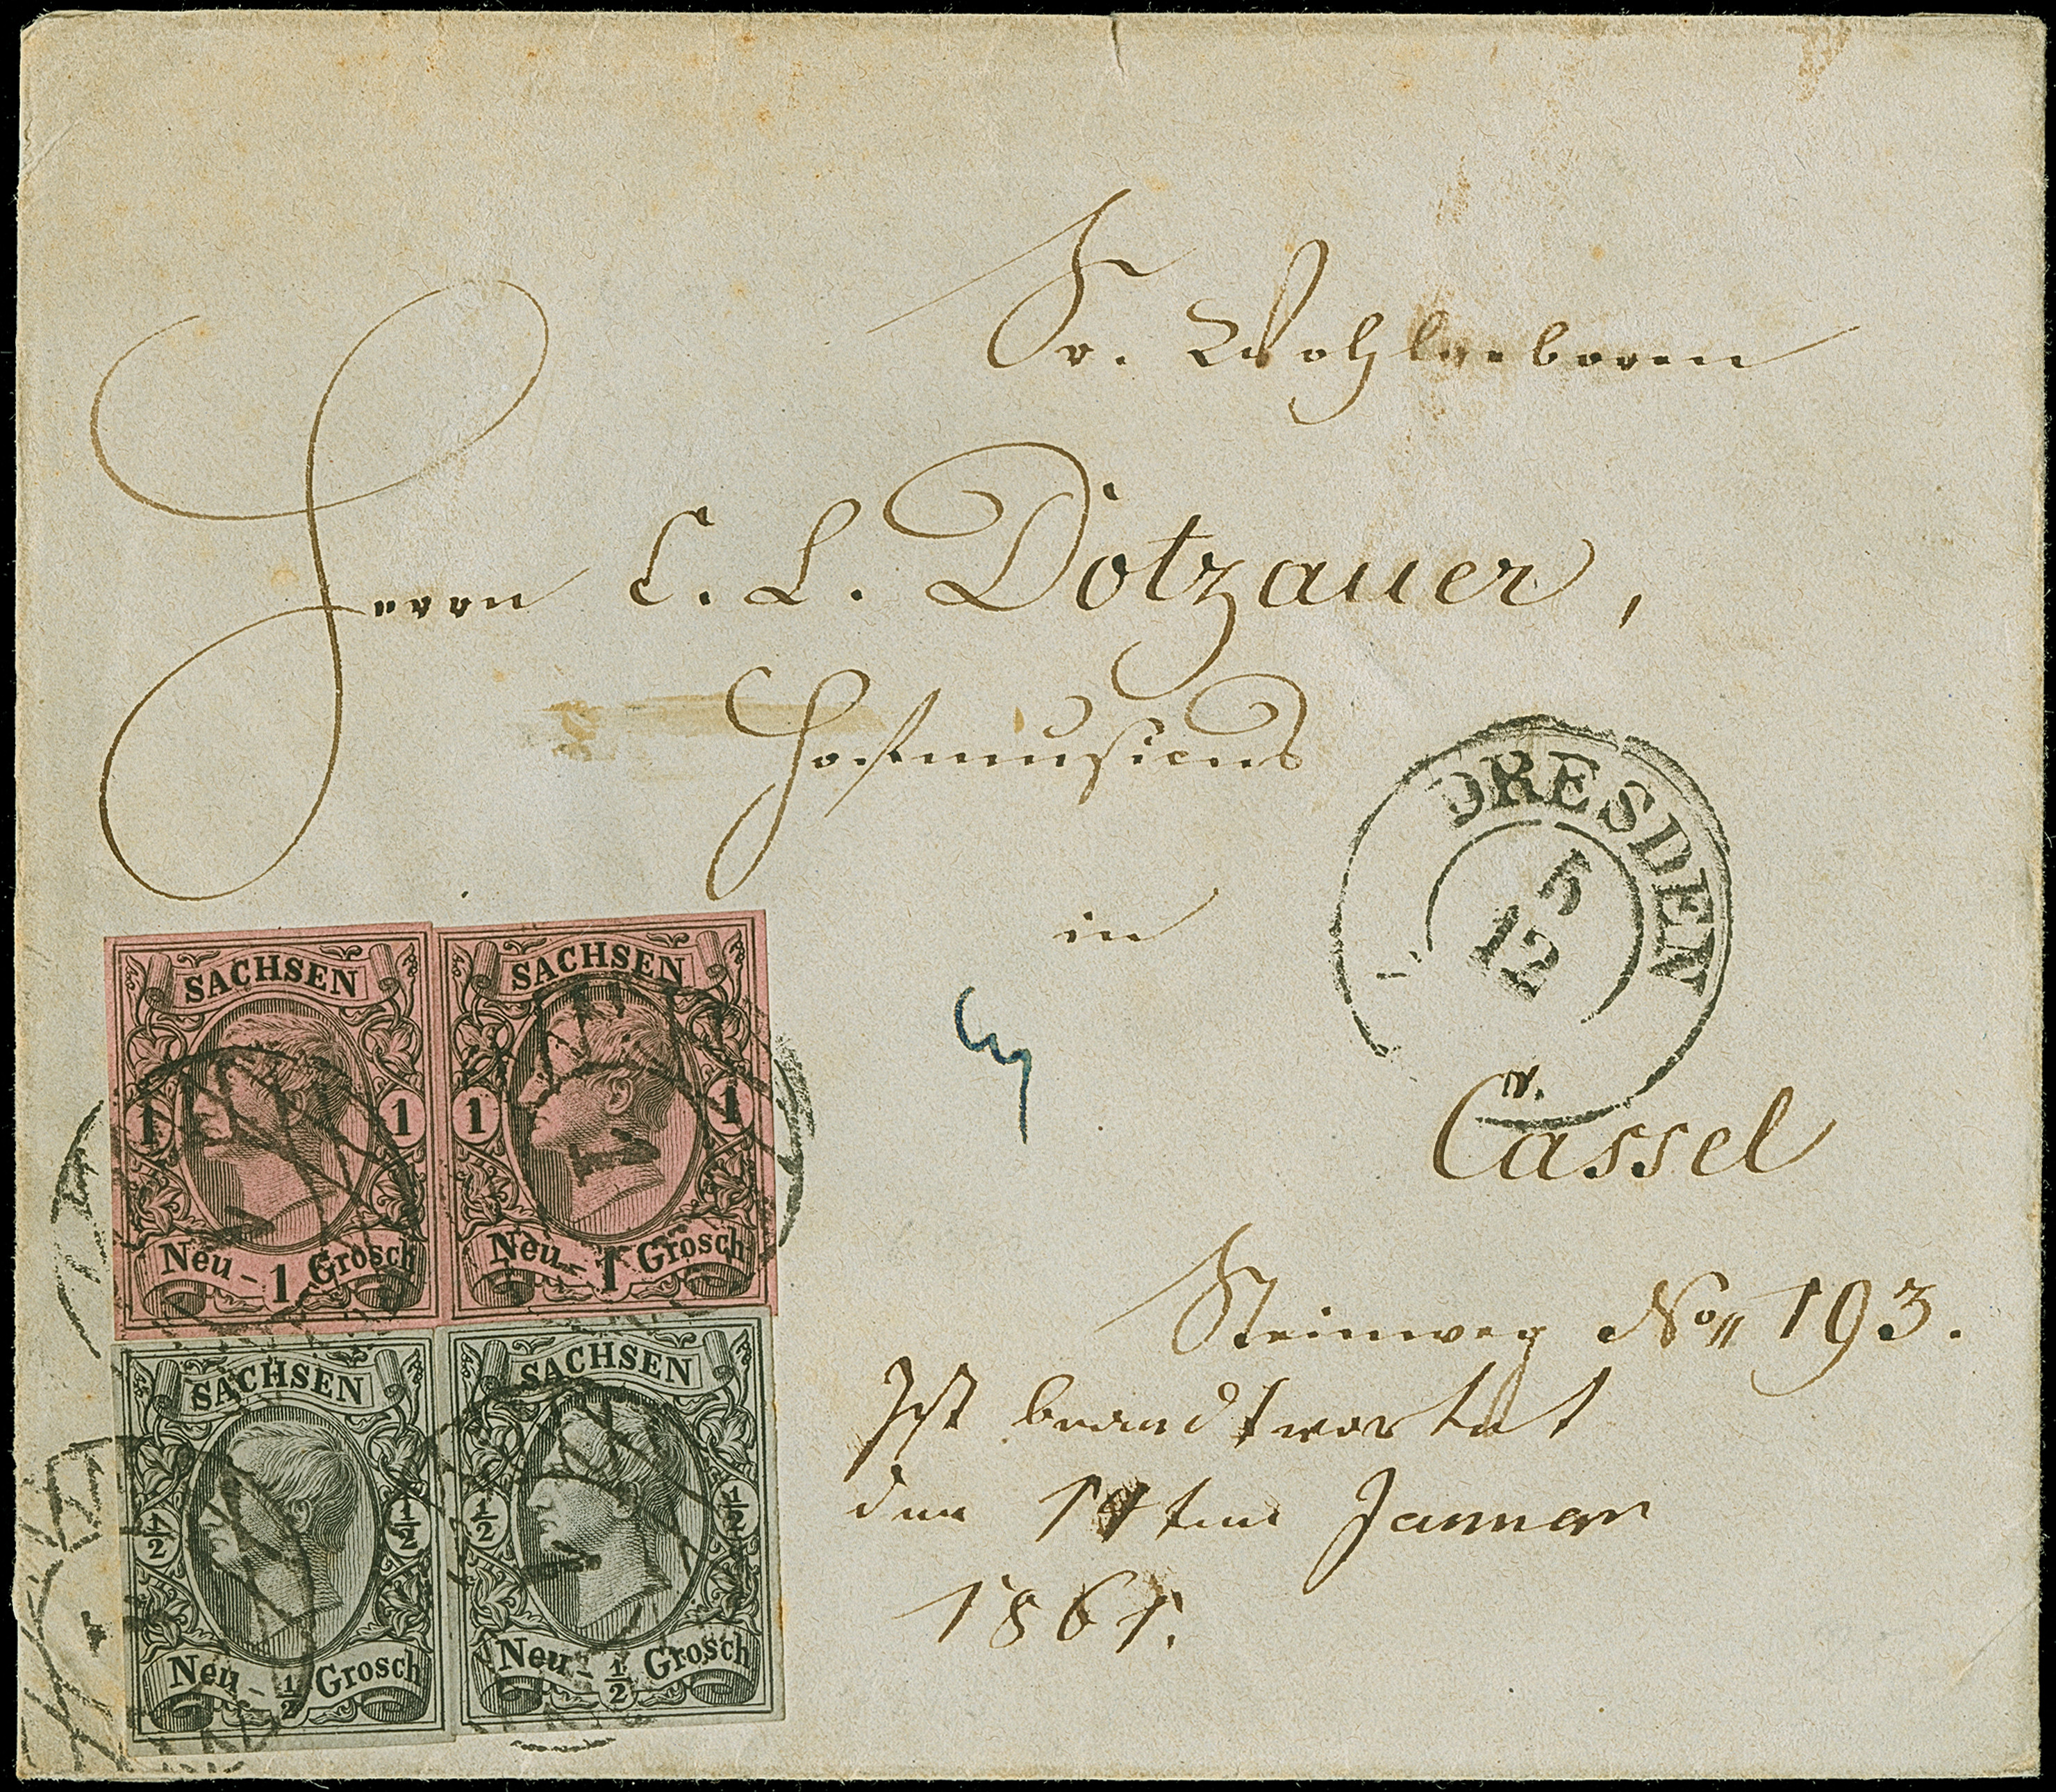 Sr. Wohlgeboren
Herrn C. L. Dotzauer,
Hofmusicus
in
DRESDEN
5
12
Cassel
Steinweg No 193.
Ist beandtwortet
den 14ten Januar
1861.
SACHSEN
1 1
Neu-1 Grosch
SACHSEN
1 1
Neu-1 Grosch
SACHSEN
½ ½
Neu-½ Grosch
SACHSEN
½ ½
Neu-½ Grosch